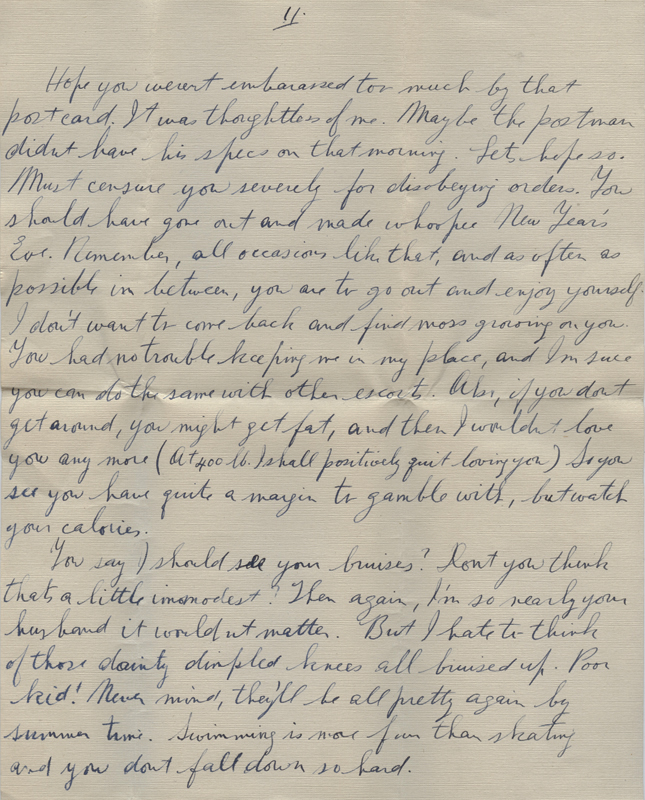 11.
Hope you weren't embarassed too much by that
postcard. It was thoughtless of me. Maybe the postman
didn't have his specs on that morning. Let's hope so.
Must censure you severely for disobeying orders. You
should have gone out and made whoopee New Year's
Eve. Remember, all occasions like that, and as often as
possible in between, you are to go out and enjoy yourself.
I don't want to come back and find moss growing on you.
You had no trouble keeping me in my place, and I'm sure
you can do the same with other escorts. Also, if you don't
get around, you might get fat, and then I wouldn't love
you any more (At 400 lb. I shall positively quit loving you) So you
see you have quite a margin to gamble with, but watch
your calories.
You say I should see your bruises? Don't you think
that's a little immodest? Then again, I'm so nearly your
husband it wouldn't matter. But I hate to think
of those dainty dimpled knees all bruised up. Poor
kid! Never mind, they'll be all pretty again by
summer time. Swimming is more fun than skating
and you don't fall down so hard.